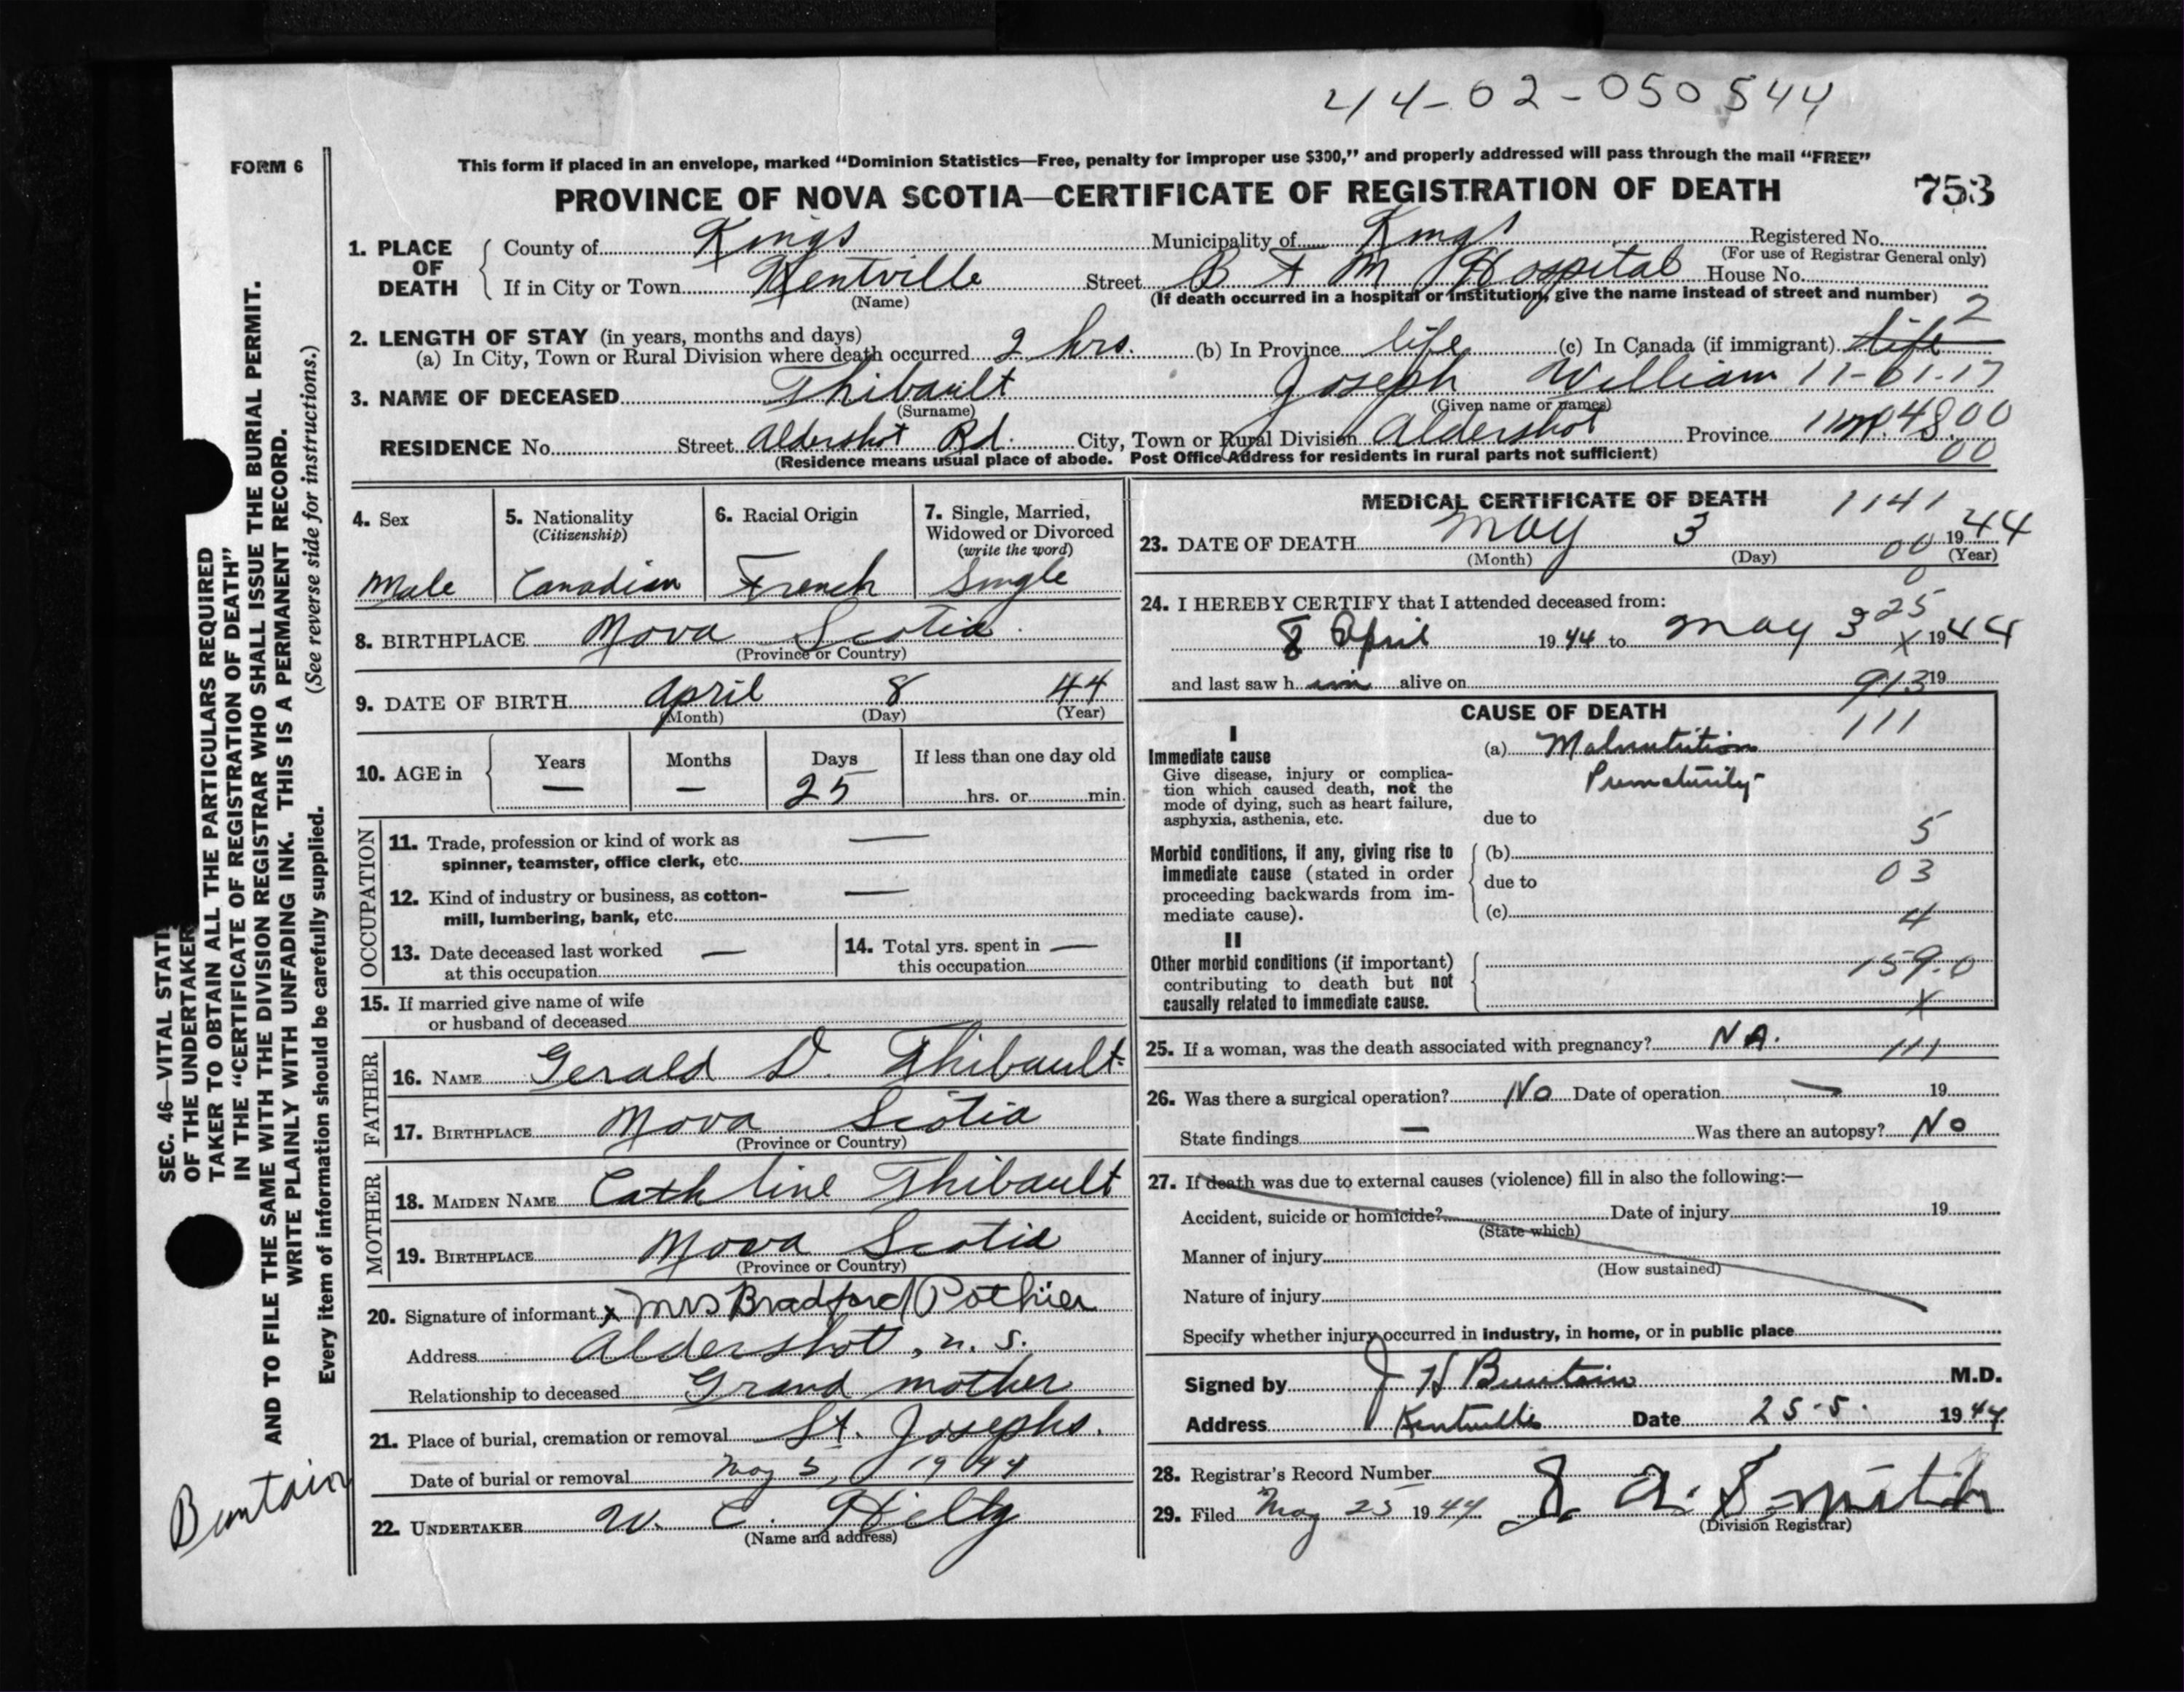 44-02-050544
FORM 6
This form if placed in an envelope, marked “Dominion Statistics—Free, penalty for improper use $300,” and properly addressed will pass through the mail “FREE”
PROVINCE OF NOVA SCOTIA—CERTIFICATE OF REGISTRATION OF DEATH 753
1. PLACE OF DEATH
County of Kings Municipality of Kings Registered No.
(For use of Registrar General only)
If in City or Town Kentville Street B F M Hospital House No.
(Name) (If death occurred in a hospital or institution, give the name instead of street and number) 2
2. LENGTH OF STAY (in years, months and days)
(a) In City, Town or Rural Division where death occurred 2 hrs. (b) In Province life (c) In Canada (if immigrant) life
3. NAME OF DECEASED Thibault Joseph William 11-61-17
(Surname) (Given name or names)
RESIDENCE No. Street Aldershot Rd. City, Town or Rural Division Aldershot Province 48.00
(Residence means usual place of abode. Post Office Address for residents in rural parts not sufficient) 00
4. Sex Male
5. Nationality (Citizenship) Canadian
6. Racial Origin French
7. Single, Married, Widowed or Divorced (write the word) Single
8. BIRTHPLACE Nova Scotia
(Province or Country)
9. DATE OF BIRTH April 8 44
(Month) (Day) (Year)
10. AGE in Years — Months — Days 25 If less than one day old
hrs. or min.
OCCUPATION
11. Trade, profession or kind of work as —
spinner, teamster, office clerk, etc.
12. Kind of industry or business, as cotton- —
mill, lumbering, bank, etc.
13. Date deceased last worked —
at this occupation
14. Total yrs. spent in —
this occupation
15. If married give name of wife
or husband of deceased
FATHER
16. NAME Gerald D. Thibault
17. BIRTHPLACE Nova Scotia
(Province or Country)
MOTHER
18. MAIDEN NAME Cathline Thibault
19. BIRTHPLACE Nova Scotia
(Province or Country)
20. Signature of informant x Mrs Bradford Pothier
Address Aldershot, N. S.
Relationship to deceased Grand mother
21. Place of burial, cremation or removal St. Josephs.
Date of burial or removal May 5, 1944
22. UNDERTAKER W. C. Hiltz
(Name and address)
MEDICAL CERTIFICATE OF DEATH 1141
23. DATE OF DEATH May 3 00 1944
(Month) (Day) (Year)
0
24. I HEREBY CERTIFY that I attended deceased from: 25
8 April 1944 to May 3 x 1944
and last saw h im alive on 913 19
CAUSE OF DEATH
I 111
Immediate cause (a) Malnutrition
Prematurity
Give disease, injury or complica-
tion which caused death, not the
mode of dying, such as heart failure,
asphyxia, asthenia, etc. due to
5
Morbid conditions, if any, giving rise to (b)
immediate cause (stated in order due to 03
proceeding backwards from im-
mediate cause). (c) 4
II
Other morbid conditions (if important) 159.0
contributing to death but not
causally related to immediate cause. x
25. If a woman, was the death associated with pregnancy? N A. 111
26. Was there a surgical operation? No Date of operation — 19
State findings — Was there an autopsy? No
27. If death was due to external causes (violence) fill in also the following:—
Accident, suicide or homicide? Date of injury 19
(State which)
Manner of injury
(How sustained)
Nature of injury
Specify whether injury occurred in industry, in home, or in public place
Signed by J H Buntain M.D.
Address Kentville Date 25-5- 1944
28. Registrar's Record Number
29. Filed May 25 1944
(Division Registrar)
SEC. 46—VITAL STATI
OF THE UNDERTAKER
TAKER TO OBTAIN ALL THE PARTICULARS REQUIRED
IN THE “CERTIFICATE OF REGISTRATION OF DEATH”
AND TO FILE THE SAME WITH THE DIVISION REGISTRAR WHO SHALL ISSUE THE BURIAL PERMIT.
WRITE PLAINLY WITH UNFADING INK. THIS IS A PERMANENT RECORD.
Every item of information should be carefully supplied. (See reverse side for instructions.)
Buntain